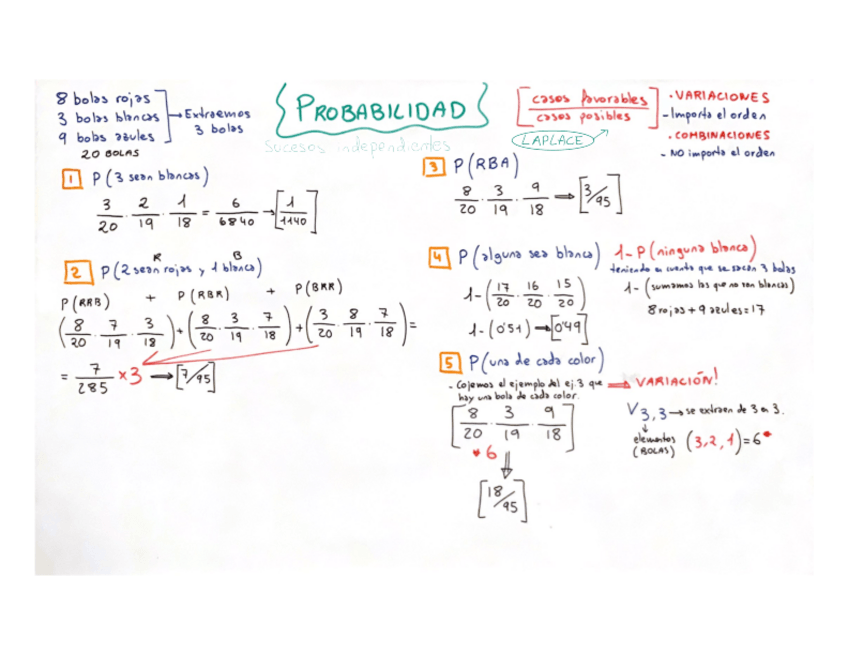 8 bolas rojas
3 bolas blancas
9 bolas azules
20 BOLAS
→ Extraemos
3 bolas
PROBABILIDAD
Sucesos independientes
casos favorables
casos posibles
LAPLACE
• VARIACIONES
- Importa el orden
• COMBINACIONES
- NO importa el orden
1 P(3 sean blancas)
3/20 · 2/19 · 1/18 = 6/6840 → [1/1140]
2 P(2 sean rojas y 1 blanca)
R B
P(RRB) + P(RBR) + P(BRR)
(8/20 · 7/19 · 3/18) + (8/20 · 3/19 · 7/18) + (3/20 · 8/19 · 7/18) =
= 7/285 × 3 → [7/95]
3 P(RBA)
8/20 · 3/19 · 9/18 → [3/95]
4 P(alguna sea blanca) 1 - P(ninguna blanca)
teniendo en cuenta que se sacan 3 bolas
1 - (17/20 · 16/20 · 15/20)
1 - (sumamos las que no son blancas)
8 rojas + 9 azules = 17
1 - (0'51) → [0'49]
5 P(una de cada color)
- Cojemos el ejemplo del ej. 3 que
hay una bola de cada color.
⇒ VARIACIÓN!
[8/20 · 3/19 · 9/18]
* 6
[18/95]
V 3,3 → se extraen de 3 en 3.
elementos
(BOLAS)
(3, 2, 1) = 6 *